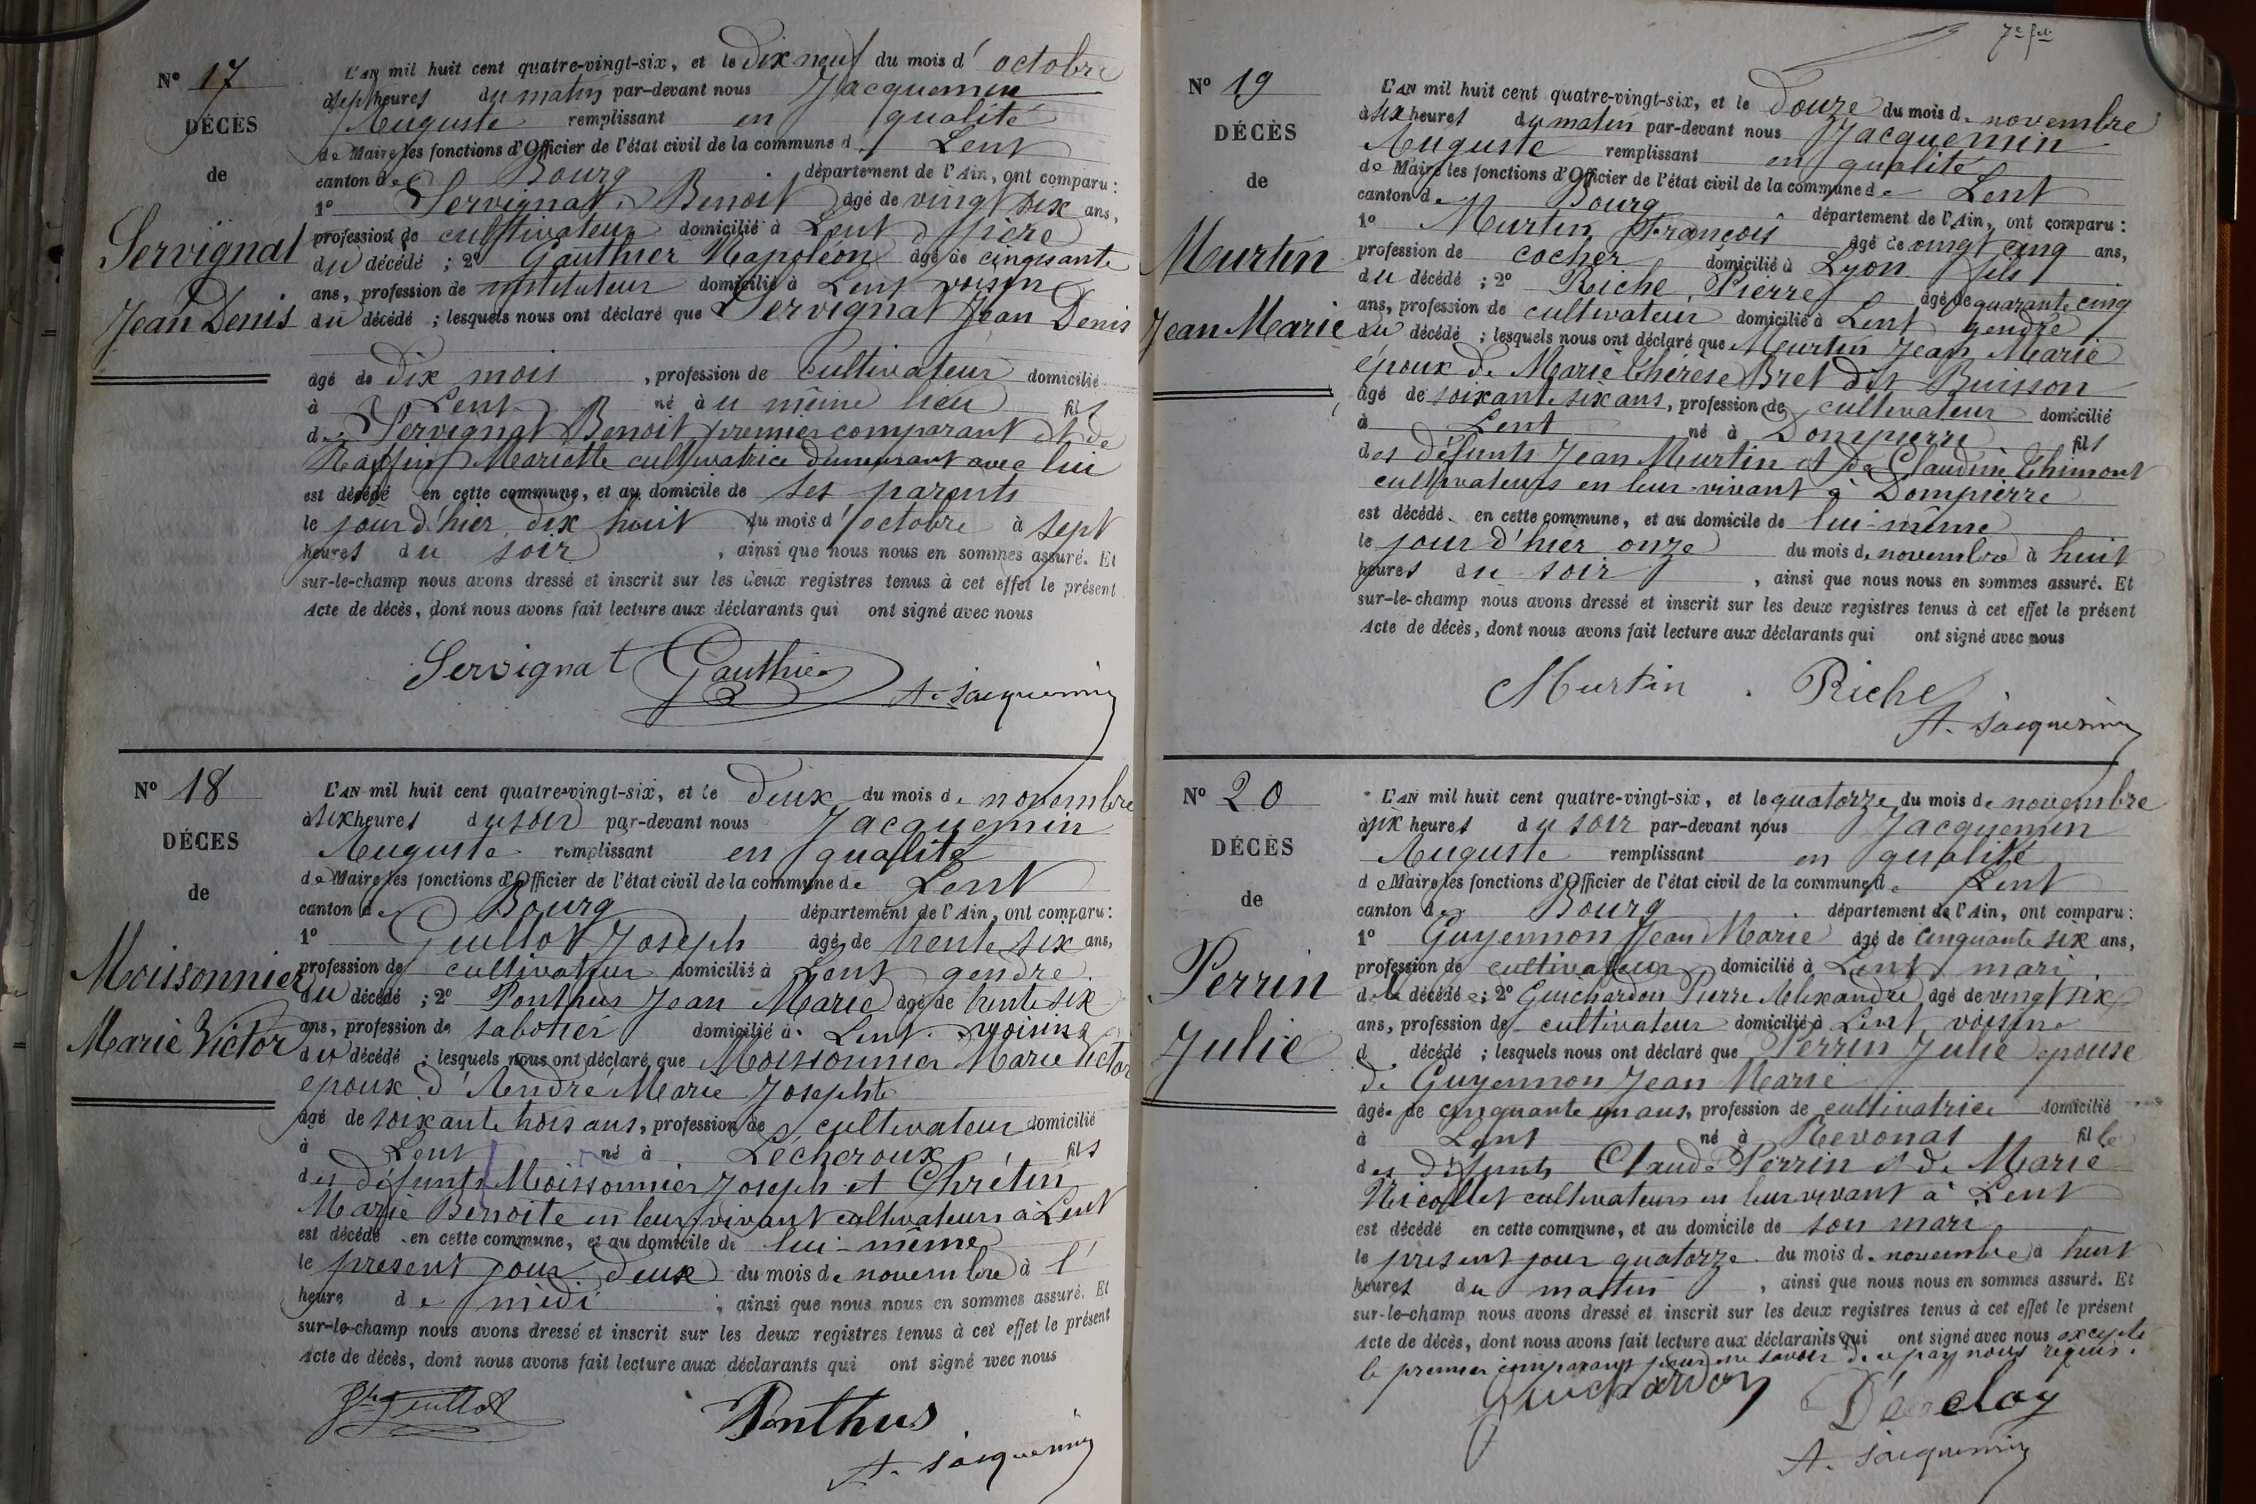 N° 17
DÉCÈS
de
Servignat
Jean Denis
L'AN mil huit cent quatre-vingt-six, et le dix neuf du mois d' octobre
à sept heures du matin par-devant nous Jacquemin
Auguste remplissant en qualité
de Maire les fonctions d'Officier de l'état civil de la commune d Lent
canton de Bourg département de l'Ain, ont comparu :
1° Servignat Benoit âgé de vingt six ans,
profession de cultivateur domicilié à Lent père
du décédé ; 2° Gauthier Napoléon âgé de cinquante
ans, profession de instituteur domicilié à Lent voisin
du décédé ; lesquels nous ont déclaré que Servignat Jean Denis
âgé de dix mois , profession de cultivateur domicilié
à Lent né à u même lieu fils
de Servignat Benoit premier comparant et de
Mariette cultivatrice demeurant avec lui
est décédé en cette commune, et au domicile de ses parents
le jour d'hier dix huit du mois d' octobre à sept
heures du soir , ainsi que nous nous en sommes assuré. Et
sur-le-champ nous avons dressé et inscrit sur les deux registres tenus à cet effet le présent
Acte de décès, dont nous avons fait lecture aux déclarants qui ont signé avec nous
Servignat Gauthier
A. Jacquemin
N° 18
DÉCES
de
Moissonnier
Marie Victor
L'AN mil huit cent quatre-vingt-six, et le deux du mois de novembre
à six heures du soir par-devant nous Jacquemin
Auguste remplissant en qualité
de Maire les fonctions d'Officier de l'état civil de la commune de Lent
canton de Bourg département de l'Ain, ont comparu :
1° Guillot Joseph âgé de trente six ans,
profession de cultivateur domicilié à Lent gendre
du décédé ; 2° Ponthus Jean Marie âgé de trente six
ans, profession de sabotier domicilié à Lent voisins
du décédé ; lesquels nous ont déclaré que Moissonnier Marie Victor
époux d'André Marie Josephte
âgé de soixante trois ans, profession de cultivateur domicilié
à Lent né à Lécheroux fils
des défunts Moissonnier Joseph et Chrétin
Marie Benoite en leur vivant cultivateurs à Lent
est décédé en cette commune, et au domicile de lui-même
le présent jour deux du mois de novembre à l'
heure de midi , ainsi que nous nous en sommes assuré. Et
sur-le-champ nous avons dressé et inscrit sur les deux registres tenus à cet effet le présent
Acte de décès, dont nous avons fait lecture aux déclarants qui ont signé avec nous
Guillot Ponthus
A. Jacquemin
7e fet
N° 19
DÉCÈS
de
Murtin
Jean Marie
L'AN mil huit cent quatre-vingt-six, et le douze du mois de novembre
à six heures du matin par-devant nous Jacquemin
Auguste remplissant en qualité
de Maire les fonctions d'Officier de l'état civil de la commune de Lent
canton de Bourg département de l'Ain, ont comparu :
1° Murtin François âgé de vingt cinq ans,
profession de cocher domicilié à Lyon fils
du décédé ; 2° Riche Pierre âgé de quarante cinq
ans, profession de cultivateur domicilié à Lent gendre
du décédé ; lesquels nous ont déclaré que Murtin Jean Marie
époux de Marie Thérèse Bret dit Buisson
âgé de soixante six ans, profession de cultivateur domicilié
à Lent né à Dompierre fils
des défunts Jean Murtin et de Claudine Thimont
cultivateurs en leur vivant à Dompierre
est décédé en cette commune, et au domicile de lui-même
le jour d'hier onze du mois de novembre à huit
heures du soir , ainsi que nous nous en sommes assuré. Et
sur-le-champ nous avons dressé et inscrit sur les deux registres tenus à cet effet le présent
Acte de décès, dont nous avons fait lecture aux déclarants qui ont signé avec nous
Murtin Riche
A. Jacquemin
N° 20
DÉCÈS
de
Perrin
Julie
L'AN mil huit cent quatre-vingt-six, et le quatorze du mois de novembre
à six heures du soir par-devant nous Jacquemin
Auguste remplissant en qualité
de Maire les fonctions d'Officier de l'état civil de la commune de Lent
canton de Bourg département de l'Ain, ont comparu :
1° Guyennon Jean Marie âgé de cinquante six ans,
profession de cultivateur domicilié à Lent mari
de la décédée ; 2° Guichardon Pierre Alexandre âgé de vingt six
ans, profession de cultivateur domicilié à Lent voisin
d décédé ; lesquels nous ont déclaré que Perrin Julie épouse
de Guyennon Jean Marie
âgée de cinquante un ans, profession de cultivatrice domicilié
à Lent né à Revonas fille
des défunts Claude Perrin et de Marie
Nicollet cultivateurs en leur vivant à Lent
est décédé en cette commune, et au domicile de son mari
le présent jour quatorze du mois de novembre à huit
heures du matin , ainsi que nous nous en sommes assuré. Et
sur-le-champ nous avons dressé et inscrit sur les deux registres tenus à cet effet le présent
Acte de décès, dont nous avons fait lecture aux déclarants qui ont signé avec nous excepté
le premier comparant pour ne savoir de ce par nous requis.
Guichardon
A. Jacquemin